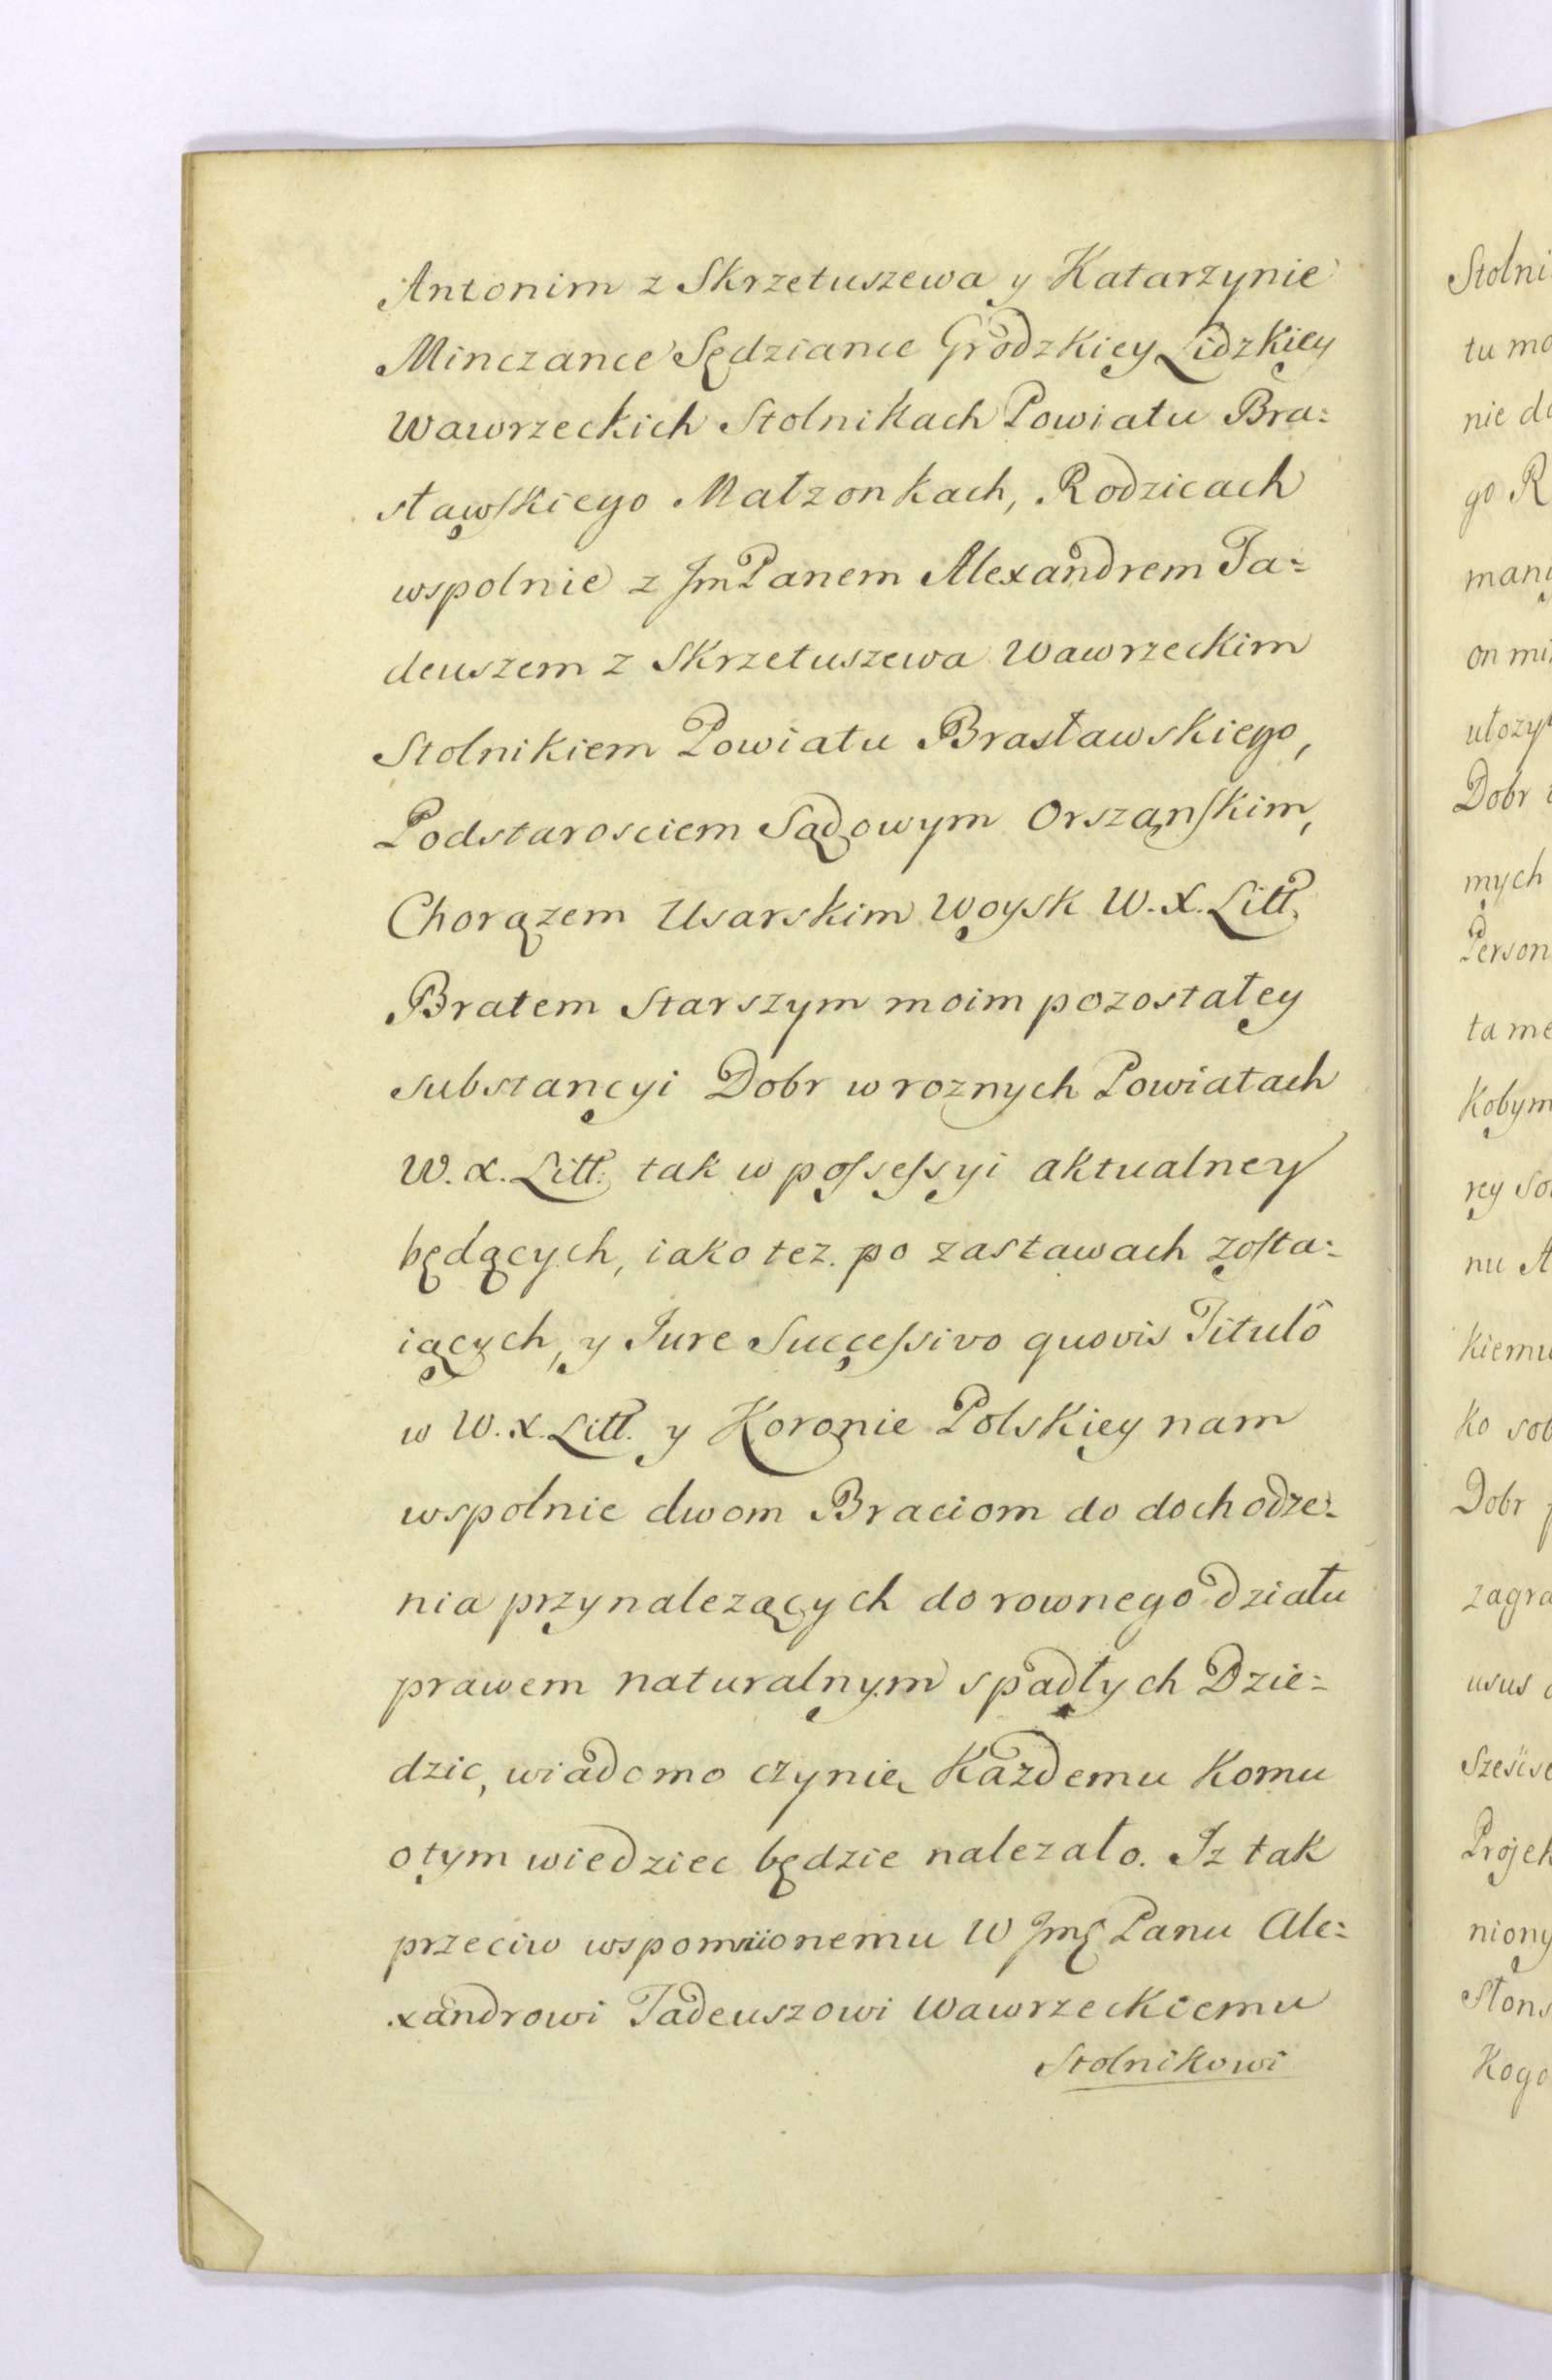 Antonim z Skrzetuszewa y Katarzynie
Minczance Sędziance Grodzkiey Lidzkiey
Wawrzeckich Stolnikach Powiatu Bra=
sławskiego Małzonkach, Rodzicach
wspolnie z JmPanem Alexandrem Ta=
deuszem z Skrzetuszewa Wawrzeckim
Stolnikiem Powiatu Brasławskiego,
Podstarosciem Sądowym Orszanskim,
Chorązem Usarskim Woysk W. X. Litt.
Bratem Starszym moim pozostałey
substancyi Dobr w roznych Powiatach
W. X. Litt. tak w possessyi aktualney
będących, iako tez po zastawach zosta=
iących, y Jure Successivo quovis Titulô
w W. X. Litt. y Koronie Polskiey nam
wspolnie dwom Braciom do dochodze=
nia przynalezących do rownego działu
prawem naturalnym spadłych Dzie=
dzic, wiadomo czynię Kazdemu Komu
o tym wiedziec będzie nalezało. Iz tak
przeciw wspomnionemu W Jmę Panu Ale=
xandrowi Tadeuszowi Wawrzeckiemu
Stolnikowi
Stolni
tu mo
nie do
go R
many
on mi
ułozył
Dobr
mych
Person
ta me
Kobym
rey so
nu A
kiemu
ko sob
Dobr
zagra
usus
Sześćse
Projek
niony
Słons
Kogo